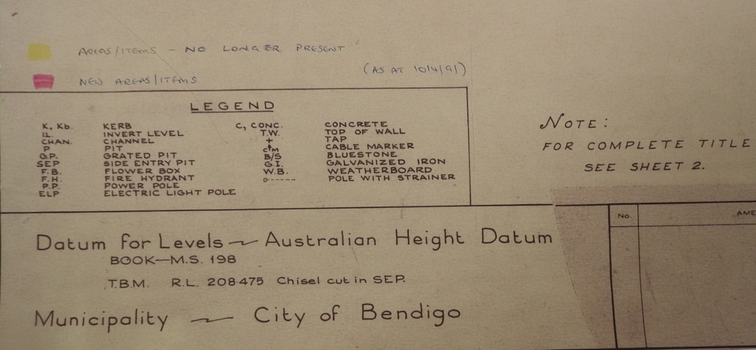 AREAS/ITEMS - NO LONGER PRESENT
(AS AT 10/4/91)
NEW AREAS/ITEMS
LEGEND
K, Kb. KERB
IL. INVERT LEVEL
CHAN. CHANNEL
P PIT
G.P. GRATED PIT
SEP SIDE ENTRY PIT
F.B. FLOWER BOX
F.H. FIRE HYDRANT
P.P. POWER POLE
ELP ELECTRIC LIGHT POLE
C, CONC. CONCRETE
T.W. TOP OF WALL
+ TAP
CABLE MARKER
B/S BLUESTONE
G.I. GALVANIZED IRON
W.B. WEATHERBOARD
POLE WITH STRAINER
NOTE:
FOR COMPLETE TITLE
SEE SHEET 2.
No. AME
Datum for Levels ~ Australian Height Datum
BOOK—M.S. 198
T.B.M. R.L. 208·475 Chisel cut in SEP.
Municipality ~ City of Bendigo